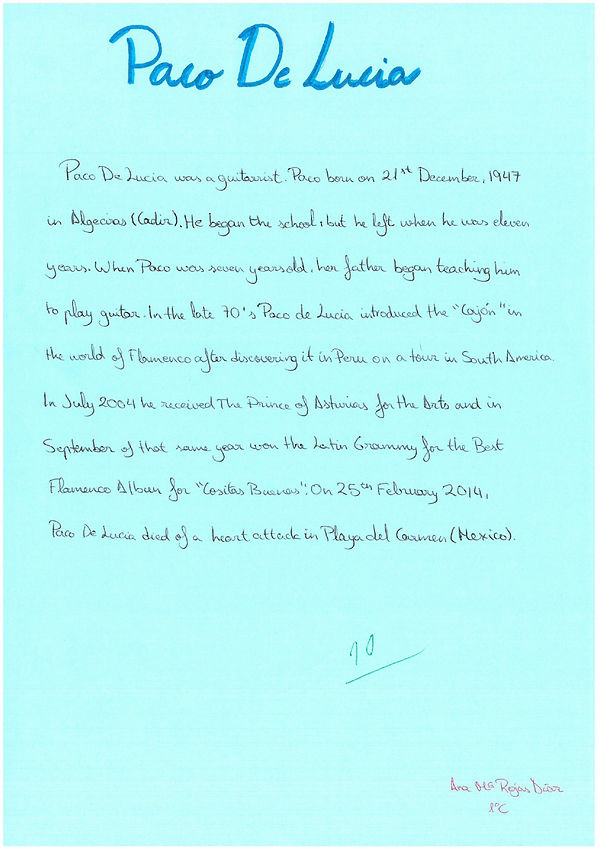 Paco De Lucia
Paco De Lucia was a guitarrist. Paco born on 21st December, 1947
in Algeciras (Cadiz). He began the school, but he left when he was eleven
years. When Paco was seven years old, her father began teaching him
to play guitar. In the late 70's Paco de Lucia introduced the "Cajón" in
the world of Flamenco after discovering it in Peru on a tour in South America.
In July 2004 he received The Prince of Asturias for the Arts and in
September of that same year won the Latin Grammy for the Best
Flamenco Album for "Cositas Buenas". On 25th February 2014,
Paco De Lucia died of a heart attack in Playa del Carmen (Mexico).
10
Ana Mª Rojas Díaz
1ºC